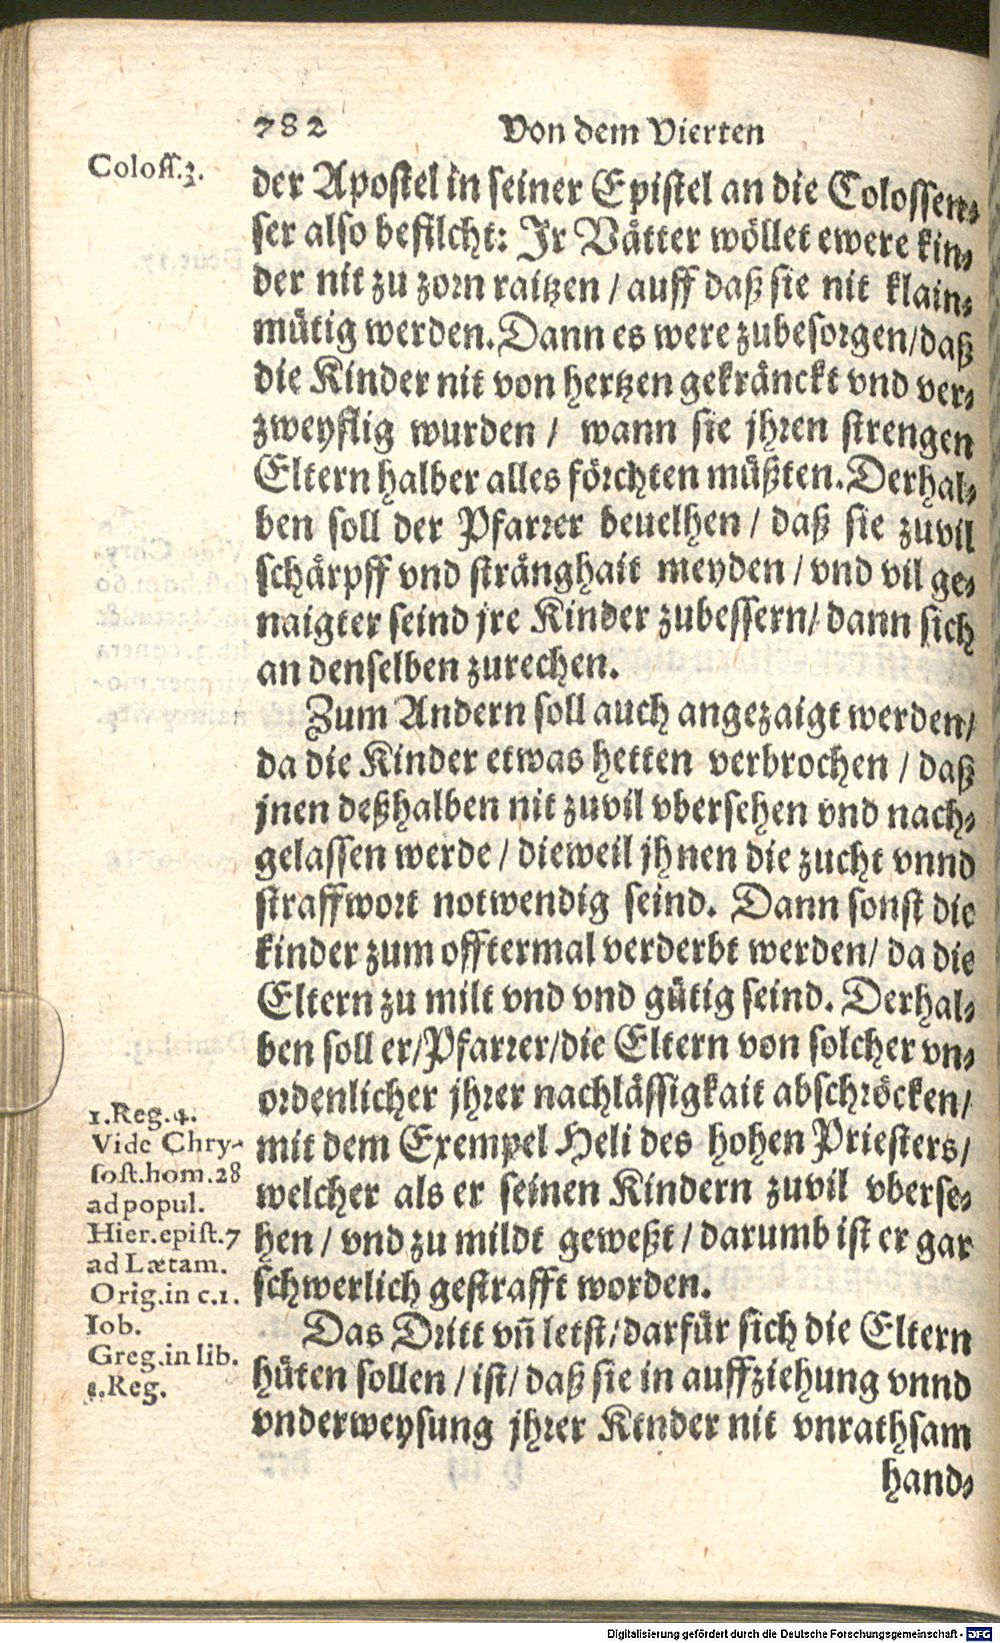 782 Von dem Vierten
Coloss.3.
der Apostel in seiner Epistel an die Colossen-
ser also befilcht: Ir Våtter wöllet ewere kin-
der nit zu zorn raitzen / auff daß sie nit klain-
mütig werden. Dann es were zubesorgen/daß
die Kinder nit von hertzen gekränckt vnd ver-
zweyflig wurden / wann sie jhren strengen
Eltern halber alles förchten müßten. Derhal-
ben soll der Pfarrer beuelhen / daß sie zuvil
schärpff vnd stränghait meyden / vnd vil ge-
naigter seind jre Kinder zubessern/ dann sich
an denselben zurechen.
Zum Andern soll auch angezaigt werden/
da die Kinder etwas hetten verbrochen / daß
jnen deßhalben nit zuvil vbersehen vnd nach-
gelassen werde / dieweil jhnen die zucht vnnd
straffwort notwendig seind. Dann sonst die
kinder zum offtermal verderbt werden/ da die
Eltern zu milt vnd vnd gütig seind. Derhal-
ben soll er/Pfarrer/die Eltern von solcher vn-
ordenlicher jhrer nachlässigkait abschröcken/
mit dem Exempel Heli des hohen Priesters/
welcher als er seinen Kindern zuvil vberse-
hen / vnd zu mildt geweßt / darumb ist er gar
schwerlich gestrafft worden.
1.Reg.4.
Vide Chry-
sost.hom.28
ad popul.
Hier.epist.7
ad Lætam.
Orig.in c.1.
Iob.
Greg.in lib.
1.Reg.
Das Dritt vn̄ letst/darfür sich die Eltern
hüten sollen / ist/ daß sie in auffziehung vnnd
vnderweysung jhrer Kinder nit vnrathsam
hand-
Digitalisierung gefördert durch die Deutsche Forschungsgemeinschaft - DFG